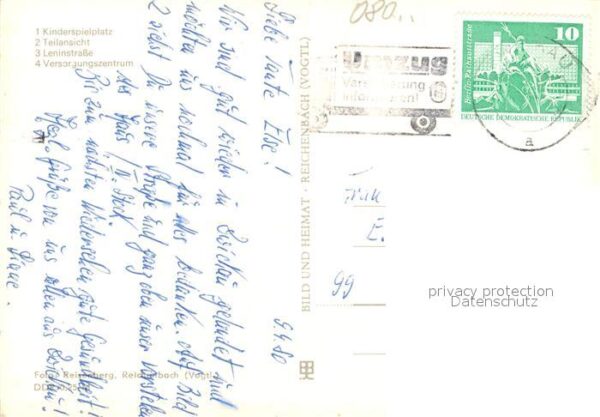 1 Kinderspielplatz
2 Teilansicht
3 Leninstraße
4 Versorgungszentrum
Liebe Tante Else!
Wir sind gut wieder in Zwickau gelandet und
möchten uns nochmal für alles bedanken. Auf Bild
2 siehst Du unsere Straße und ganz oben unser
das Haus
Bis zum nächsten Wiedersehen gute Gesundheit!
Herzl. Grüße von uns allen aus Zwickau!
Paul u.
9.4.80
Foto: Reisenberg, Reichenbach (Vogtl.)
BILD UND HEIMAT · REICHENBACH (VOGTL)
080..
Umzug
Versicherung
informieren!
Berlin, Rathausstraße
10
DEUTSCHE DEMOKRATISCHE REPUBLIK
a
Frau
E.
99
privacy protection
Datenschutz